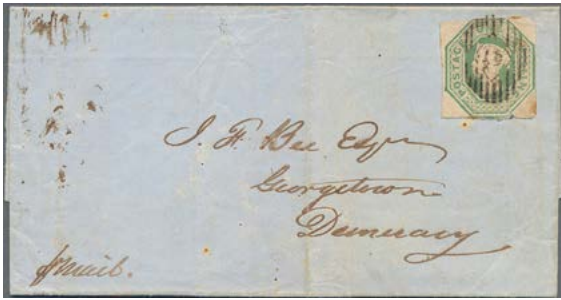 POSTAGE
J. F. Bee Esqr
Georgetown
Demerary
pr mail.